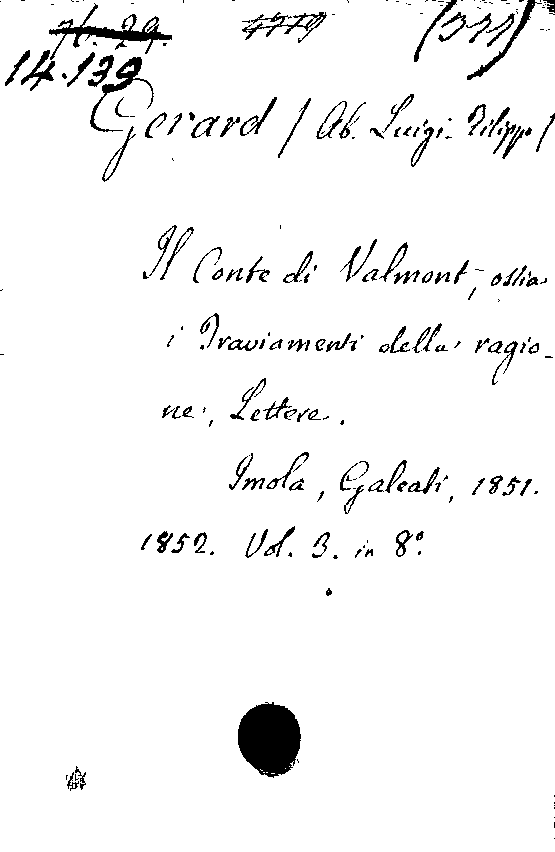 14.139
Gerard / Ab. Luigi Filippo /
Il Conte di Valmont, ossia
i Traviamenti della ragio-
ne, Lettere.
Imola, Galeati, 1851.
1852. Vol. 3. in 8°.